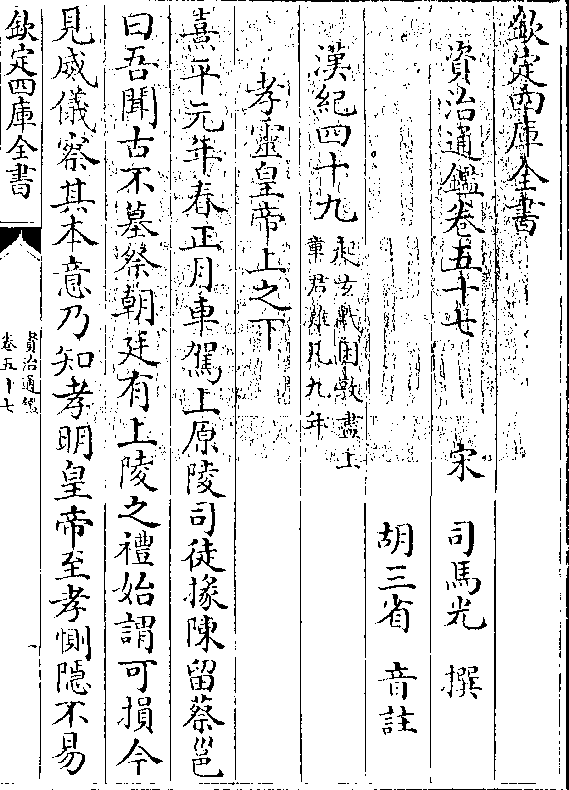 欽定四庫全書
資治通鑑卷五十七
宋 司馬光 撰
胡三省 音註
漢紀四十九
起玄黓困敦盡上
章君灘凡九年
孝靈皇帝上之下
熹平元年春正月車駕上原陵司徒掾陳留蔡邕
曰吾聞古不墓祭朝廷有上陵之禮始謂可損今
見威儀察其本意乃知孝明皇帝至孝惻隱不易
欽定四庫全書
資治通鑑
卷五十七